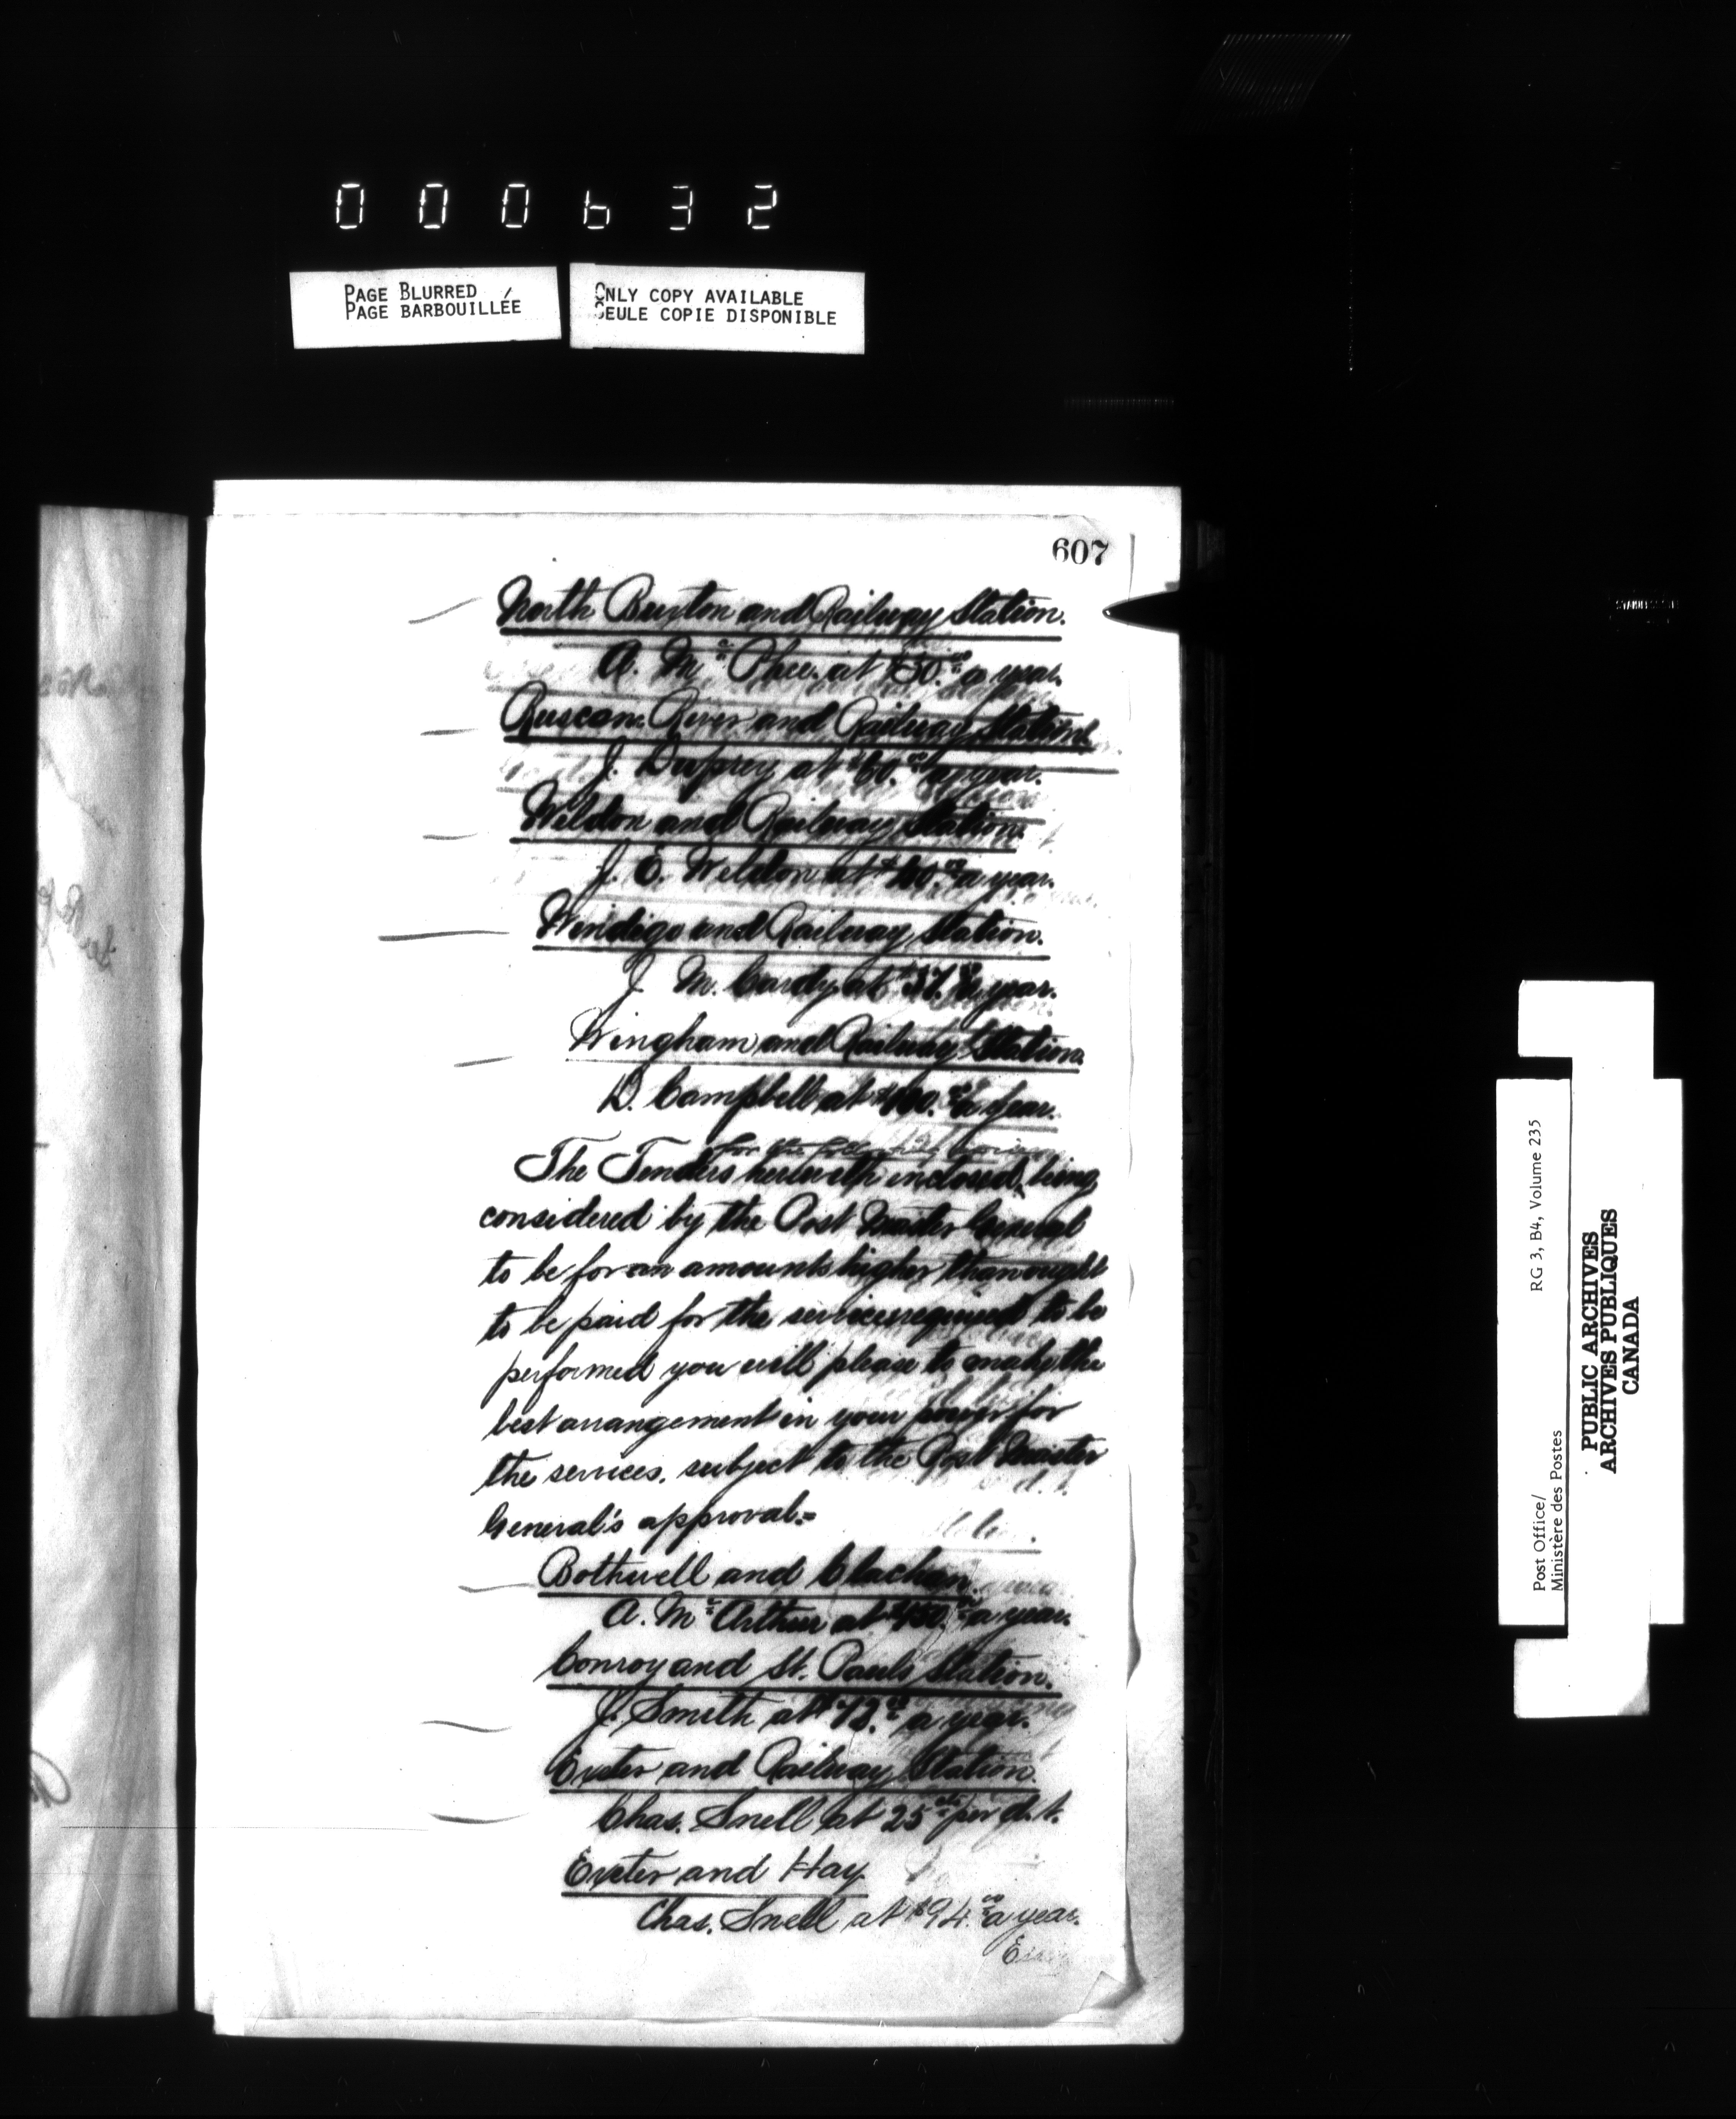 000632
PAGE BLURRED
PAGE BARBOUILLÉE
ONLY COPY AVAILABLE
SEULE COPIE DISPONIBLE
607
North Buxton and Railway Station.
A. Mc Phee. at $50.00 a year.
Ruscom River and Railway Station.
J. at $60.00 a year.
Weldon and Railway Station.
J. E. Weldon at a year.
Windigo and Railway Station.
J. M. Cardy at a year.
Wingham and Railway Station.
D. Campbell at $100.00 a year.
for the following services
The Tenders herewith inclosed, being
considered by the Post Master General
to be for an amounts higher than ought
to be paid for the services required to be
performed you will please to make the
best arrangement in your power for
the services, subject to the Post Master
General's approval.=
Bothwell and Clachan.
A. Mc Arthur at $450.00 a year.
Conroy and St. Pauls Station.
J. Smith at $73.00 a year.
Exeter and Railway Station.
Chas. Snell at 25 cts per d.t.
Exeter and Hay
Chas. Snell at $94.00 a year.
RG 3, B4, Volume 235
Post Office/
Ministère des Postes
PUBLIC ARCHIVES
ARCHIVES PUBLIQUES
CANADA